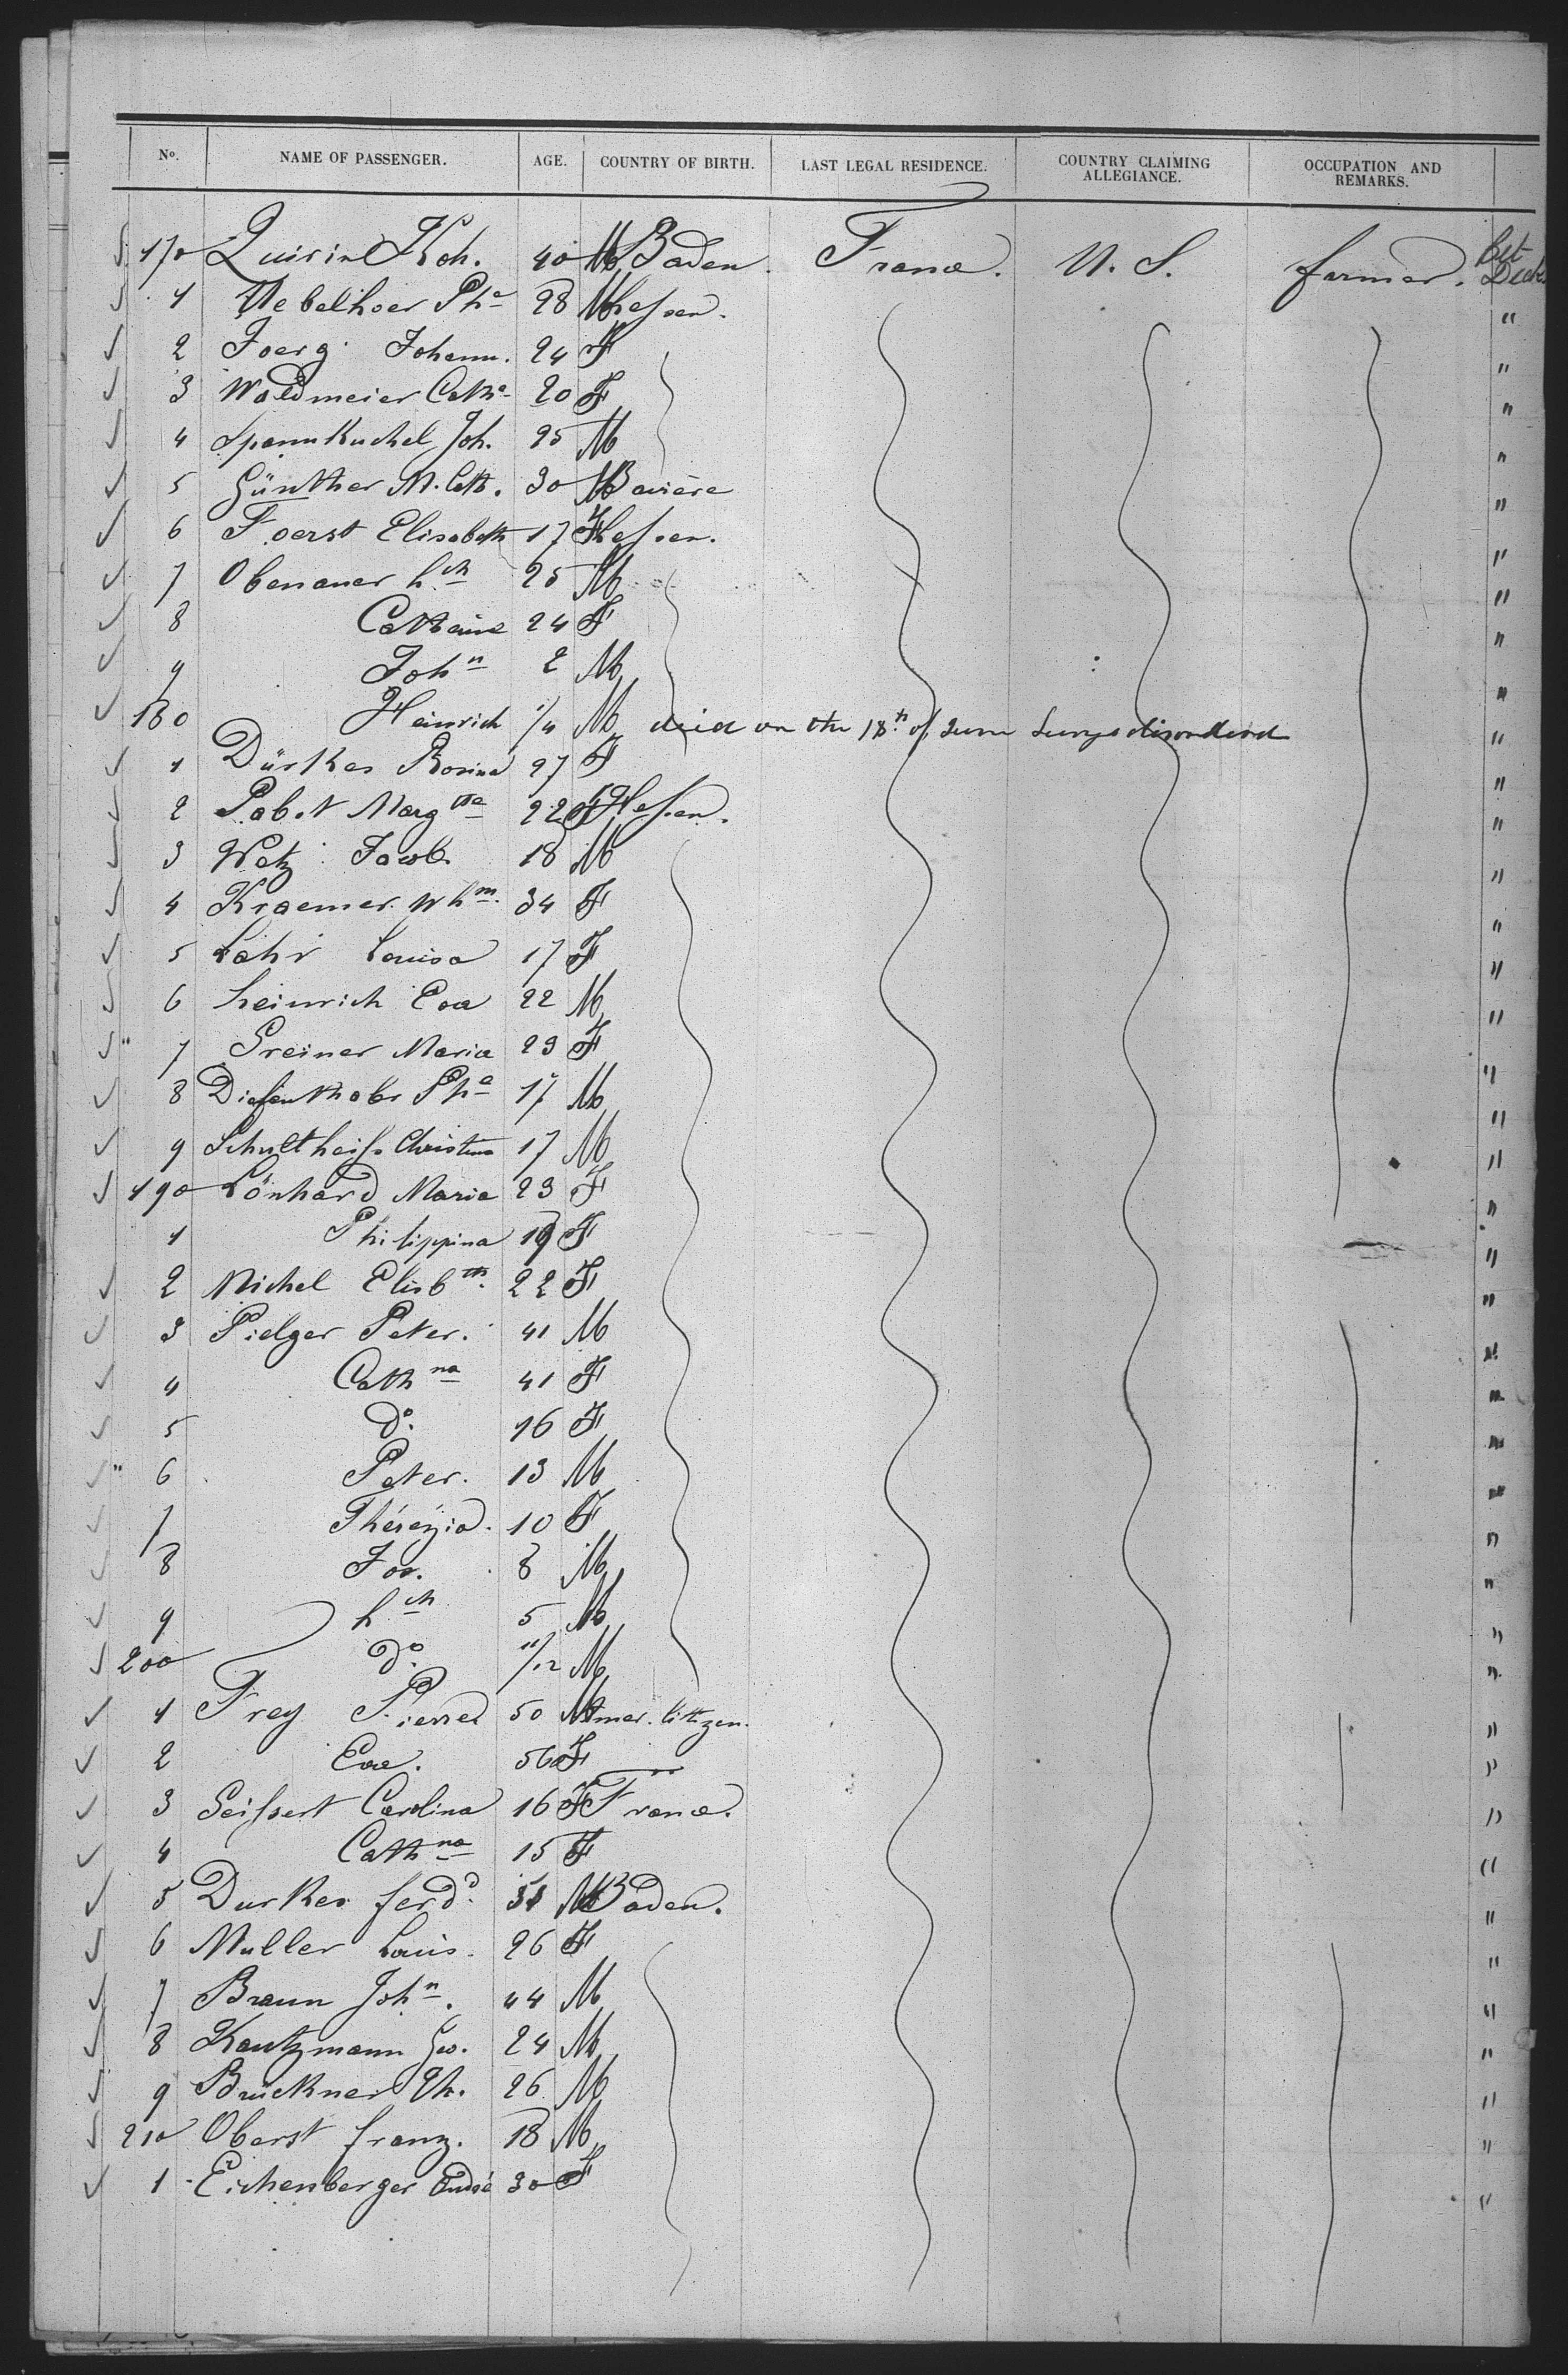 No. NAME OF PASSENGER. AGE. COUNTRY OF BIRTH. LAST LEGAL RESIDENCE. COUNTRY CLAIMING ALLEGIANCE. OCCUPATION AND REMARKS.
170 Quirin Joh. 40 M Baden. France. U. S. farmer. Bet Deck
1 Uebelhoer Phe 28 M Hessen. "
2 Joerg Johann. 24 F "
3 Waldmeier Cathe 20 F "
4 Spannkuchel Joh. 25 M "
5 Günther M. Cath. 30 M Bavière "
6 Foerst Elisabeth 17 F Hessen. "
7 Obenauer hch 25 M "
8 Catharine 24 F "
9 John 2 M "
180 Heinrich 1/4 M died on the 18th of June Lungs "
1 Dürkes Rosina 27 F "
2 Pabst Margthe 22 F Hessen. "
3 Wetz Jacob 18 M "
4 Kraemer Whm. 34 F "
5 Lahr Louisa 17 F "
6 heinrich Eva 22 M "
7 Greiner Maria 23 F "
8 Diefenthaler Phe 17 M "
9 Schultheiss Christina 17 M "
190 Lönhard Maria 23 F "
1 Philippina 19 F "
2 Michel Elisbth. 22 F "
3 Pielger Peter. 41 M "
4 Cathna 41 F "
5 do. 16 F "
6 Peter. 13 M "
7 Thérézia. 10 F "
8 Jos. 8 M "
9 hch 5 M "
200 do. 11/12 M "
1 Frey Pierre 50 M Amer. Citizen. "
2 Eva. 56 F "
3 Seissert Carolina 16 F France. "
4 Cathna 15 F "
5 Durkes ferdd. 51 M Baden. "
6 Muller Louis. 26 F "
7 Braun John. 44 M "
8 Kautzmann Geo. 24 M "
9 Brückner Th. 26 M "
210 Oberst franz. 18 M "
1 Eichenberger André 30 F "